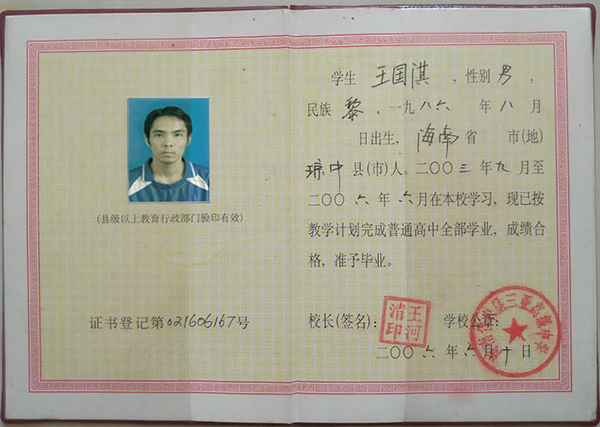 (县级以上教育行政部门验印有效)
证书登记第021606167号
学生 王国淇 ，性别 男 ，
民族 黎 ，一九八六 年 八 月
日出生， 海南 省 市(地)
琼中 县(市)人。二〇〇三 年 九 月至
二〇〇六 年 六 月在本校学习，现已按
教学计划完成普通高中全部学业，成绩合
格，准予毕业。
校长(签名)：
王河清印
学校公章：
三亚高级中学
二〇〇六 年 六 月 十 日